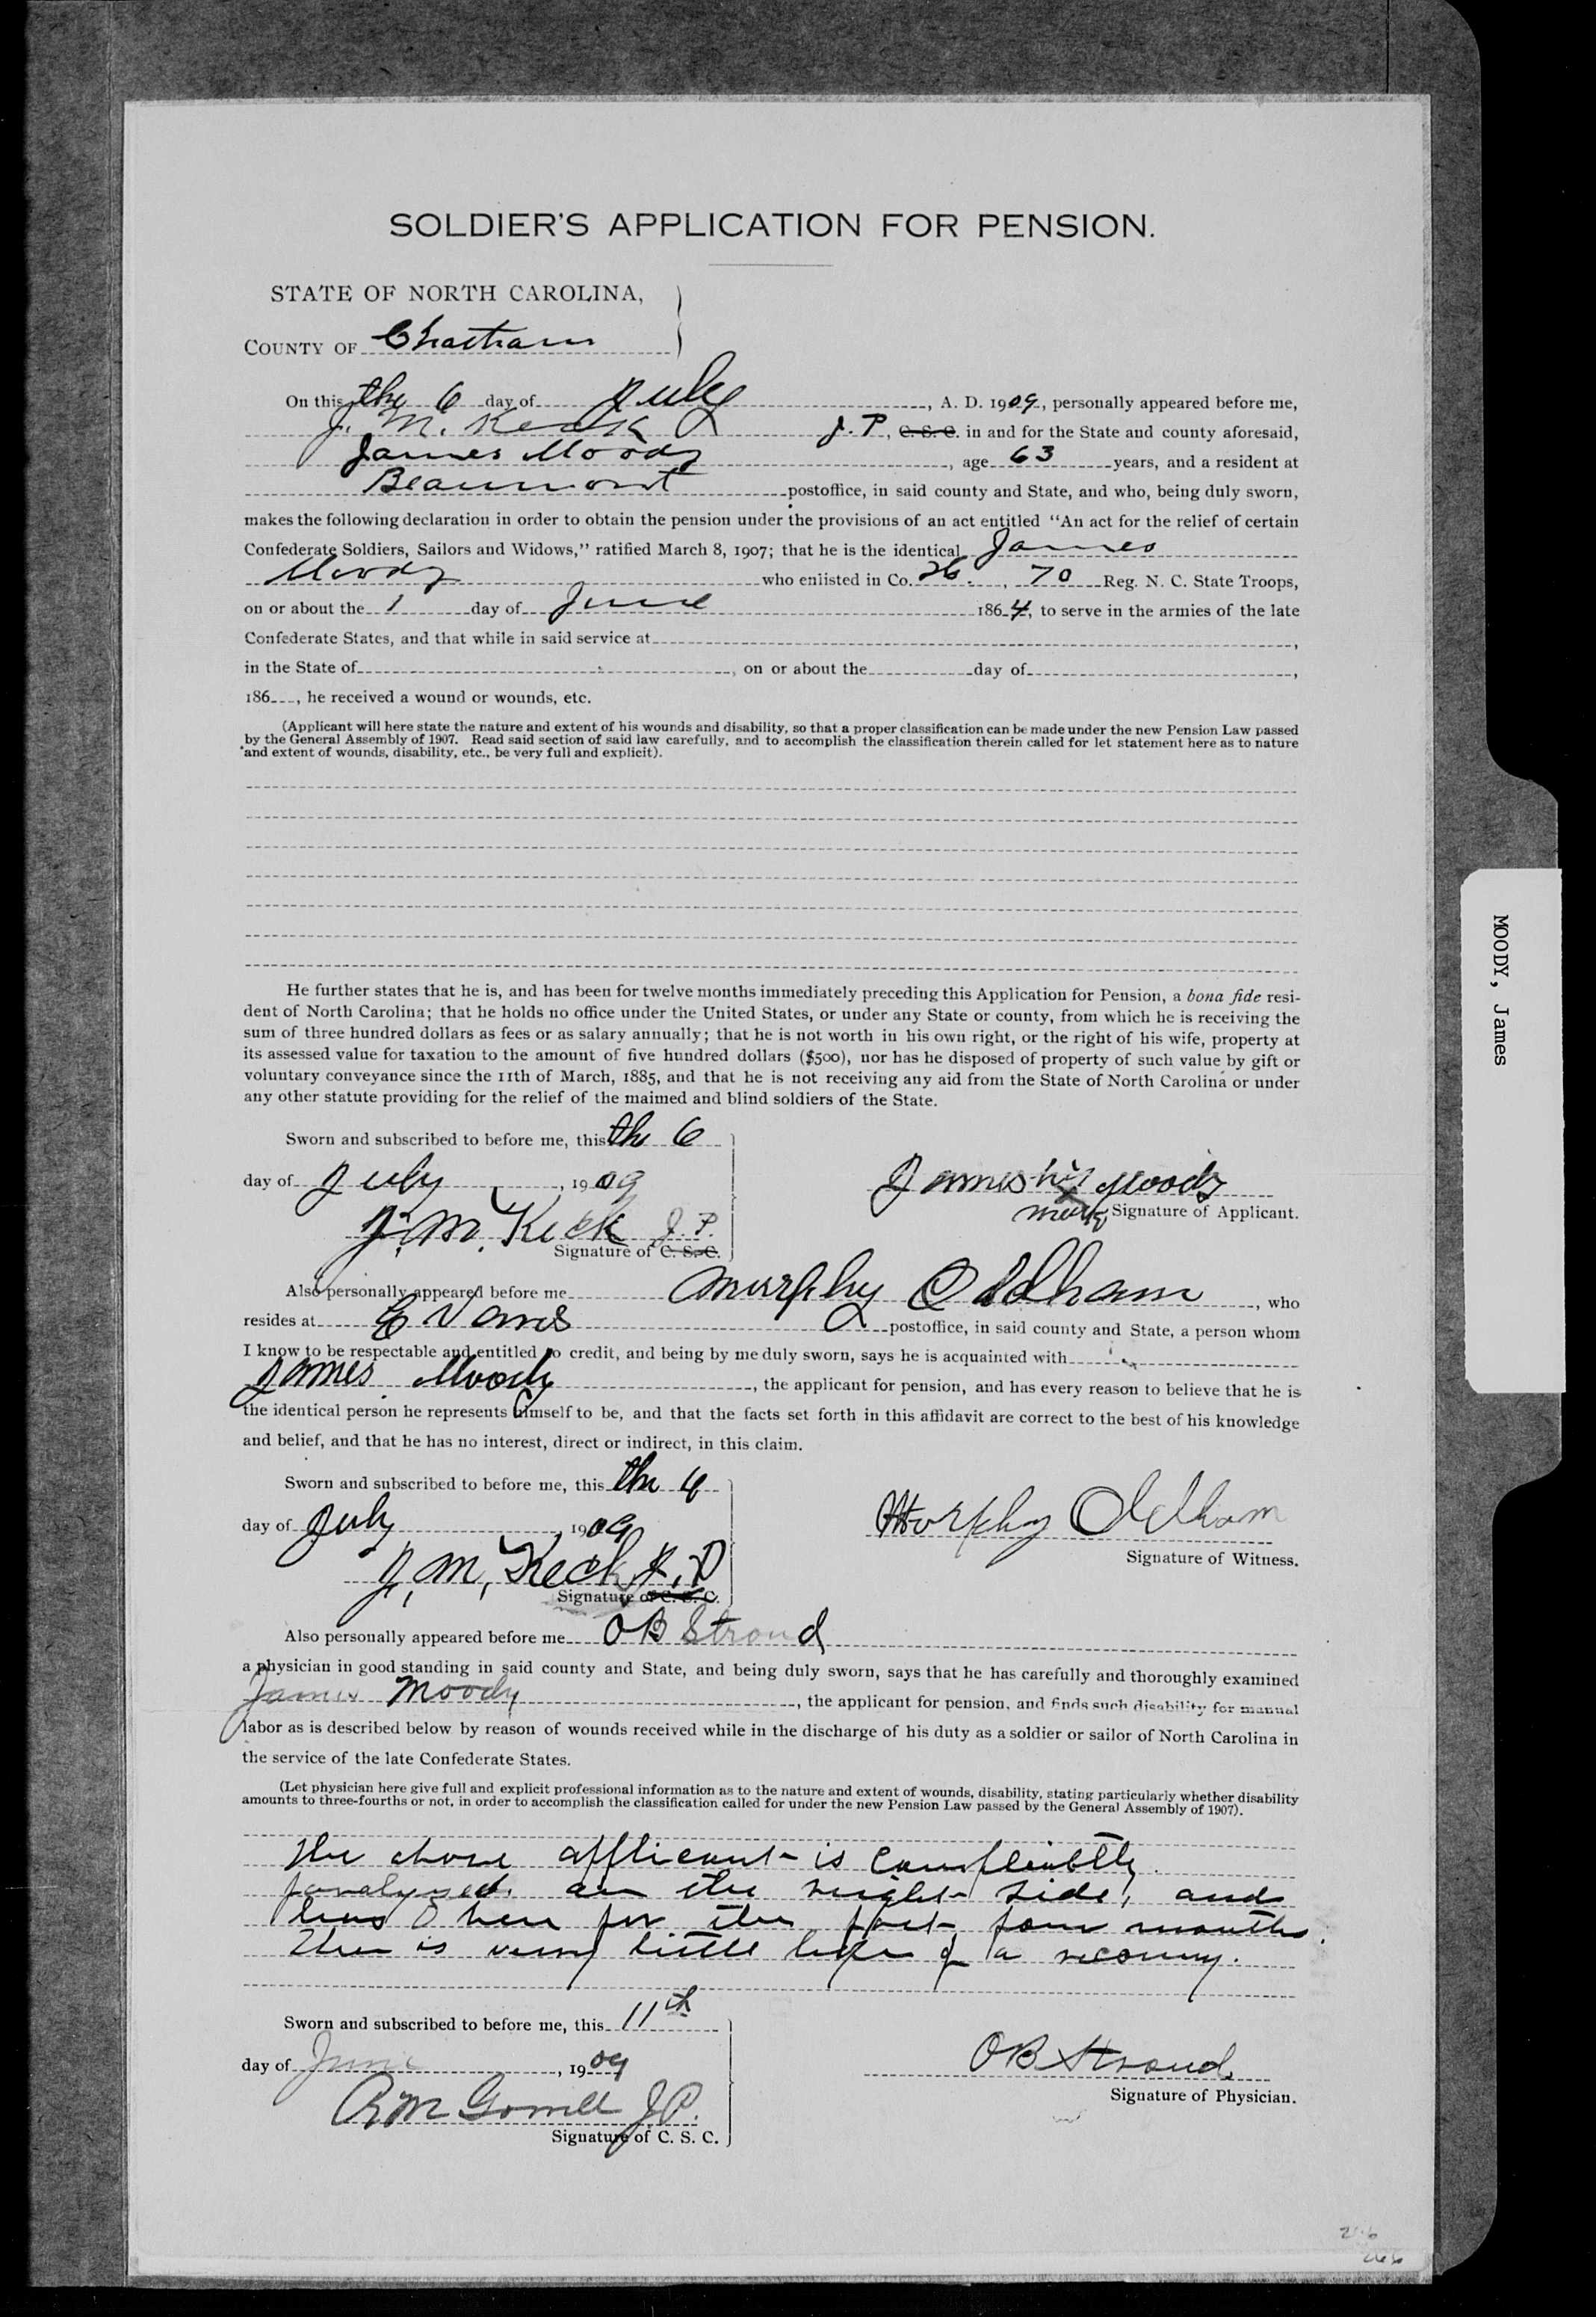 SOLDIER'S APPLICATION FOR PENSION.
STATE OF NORTH CAROLINA,
COUNTY OF Chatham
On this the 6 day of July, A. D. 1909, personally appeared before me,
J. M. Keck J. P, C. S. C. in and for the State and county aforesaid,
James Moody, age 63 years, and a resident at
Beaumont postoffice, in said county and State, and who, being duly sworn,
makes the following declaration in order to obtain the pension under the provisions of an act entitled "An act for the relief of certain
Confederate Soldiers, Sailors and Widows," ratified March 8, 1907; that he is the identical James
Moody who enlisted in Co. 26., 70 Reg. N. C. State Troops,
on or about the 1 day of June 1864, to serve in the armies of the late
Confederate States, and that while in said service at
in the State of, on or about the day of,
186, he received a wound or wounds, etc.
(Applicant will here state the nature and extent of his wounds and disability, so that a proper classification can be made under the new Pension Law passed
by the General Assembly of 1907. Read said section of said law carefully, and to accomplish the classification therein called for let statement here as to nature
and extent of wounds, disability, etc., be very full and explicit).
He further states that he is, and has been for twelve months immediately preceding this Application for Pension, a bona fide resi-
dent of North Carolina; that he holds no office under the United States, or under any State or county, from which he is receiving the
sum of three hundred dollars as fees or as salary annually; that he is not worth in his own right, or the right of his wife, property at
its assessed value for taxation to the amount of five hundred dollars ($500), nor has he disposed of property of such value by gift or
voluntary conveyance since the 11th of March, 1885, and that he is not receiving any aid from the State of North Carolina or under
any other statute providing for the relief of the maimed and blind soldiers of the State.
Sworn and subscribed to before me, this the 6
day of July, 1909
James his Moody
mark Signature of Applicant.
J. M. Keck J. P.
Signature of C. S. C.
Also personally appeared before me Murphy Oldham, who
resides at Evans postoffice, in said county and State, a person whom
I know to be respectable and entitled to credit, and being by me duly sworn, says he is acquainted with
James Moody, the applicant for pension, and has every reason to believe that he is
the identical person he represents himself to be, and that the facts set forth in this affidavit are correct to the best of his knowledge
and belief, and that he has no interest, direct or indirect, in this claim.
Sworn and subscribed to before me, this the 6
day of July, 1909
Murphy Oldham
Signature of Witness.
J. M. Keck J. P
Signature of C. S. C.
Also personally appeared before me O B Stroud
a physician in good standing in said county and State, and being duly sworn, says that he has carefully and thoroughly examined
James Moody, the applicant for pension, and finds such disability for manual
labor as is described below by reason of wounds received while in the discharge of his duty as a soldier or sailor of North Carolina in
the service of the late Confederate States.
(Let physician here give full and explicit professional information as to the nature and extent of wounds, disability, stating particularly whether disability
amounts to three-fourths or not, in order to accomplish the classification called for under the new Pension Law passed by the General Assembly of 1907).
The above applicant is
paralyzed. on the right side, and
has been for the past four months.
There is very little hope of a recovery.
Sworn and subscribed to before me, this 11th
day of June, 1909
O B Stroud
Signature of Physician.
J P.
Signature of C. S. C.
MOODY, James